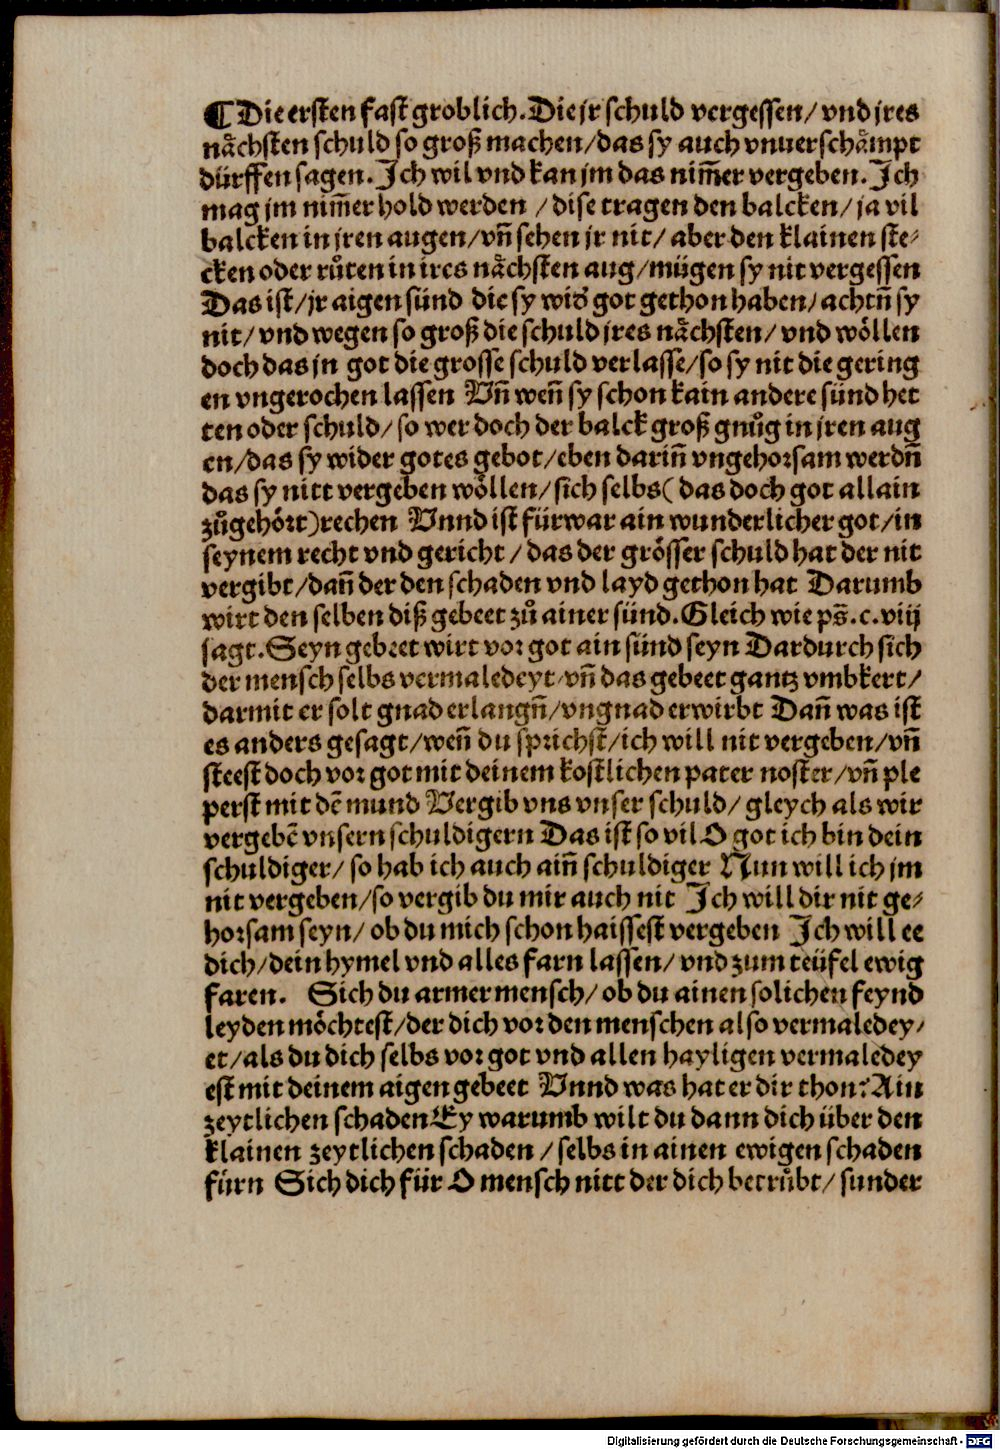 ¶ Die ersten fast groblich. Die jr schuld vergessen/ vnd jres
nåchsten schuld so groß machen/das sy auch vnuerschåmpt
dürffen sagen. Ich wil vnd kan jm das nim̃er vergeben. Ich
mag jm nim̃er hold werden / dise tragen den balcken/ ja vil
balcken in jren augen/vñ sehen jr nit/ aber den klainen ste⸗
cken oder růten in ires nåchsten aug/mügen sy nit vergessen
Das ist/jr aigen sünd die sy wid᷑ got gethon haben/ achtñ sy
nit/ vnd wegen so groß die schuld jres nåchsten/ vnd wöllen
doch das jn got die grosse schuld verlasse/so sy nit die gering
en vngerochen lassen Vñ weñ sy schon kain andere sünd het
ten oder schuld/ so wer doch der balck groß gnůg in jren aug
en/das sy wider gotes gebot/eben dariñ vngehorsam werdñ
das sy nitt vergeben wöllen/sich selbs( das doch got allain
zůgehört)rechen Vnnd ist fürwar ain wunderlicher got/in
seynem recht vnd gericht / das der grösser schuld hat der nit
vergibt/dañ der den schaden vnd layd gethon hat Darumb
wirt den selben diß gebeet zů ainer sünd. Gleich wie ps̃. c. viij
sagt. Seyn gebeet wirt vor got ain sünd seyn Dardurch sich
der mensch selbs vermaledeyt/vñ das gebeet gantz vmbkert/
darmit er solt gnad erlangñ/vngnad erwirbt Dañ was ist
es anders gesagt/weñ du sprichst/ich will nit vergeben/vñ
steest doch vor got mit deinem kostlichen pater noster/vñ ple
perst mit dẽ mund Vergib vns vnser schuld/ gleych als wir
vergebẽ vnsern schuldigern Das ist so vil O got ich bin dein
schuldiger/ so hab ich auch aiñ schuldiger Nun will ich jm
nit vergeben/so vergib du mir auch nit Ich will dir nit ge⸗
horsam seyn/ ob du mich schon haissest vergeben Ich will ee
dich/dein hymel vnd alles farn lassen/ vnd zum teüfel ewig
faren. Sich du armer mensch/ ob du ainen solichen feynd
leyden möchtest/der dich vor den menschen also vermaledey⸗
et/als du dich selbs vor got vnd allen hayligen vermaledey
est mit deinem aigen gebeet Vnnd was hat er dir thon? Ain
zeytlichen schaden Ey warumb wilt du dann dich über den
klainen zeytlichen schaden / selbs in ainen ewigen schaden
fürn Sich dich für O mensch nitt der dich betrůbt/ sunder
Digitalisierung gefördert durch die Deutsche Forschungsgemeinschaft - DFG